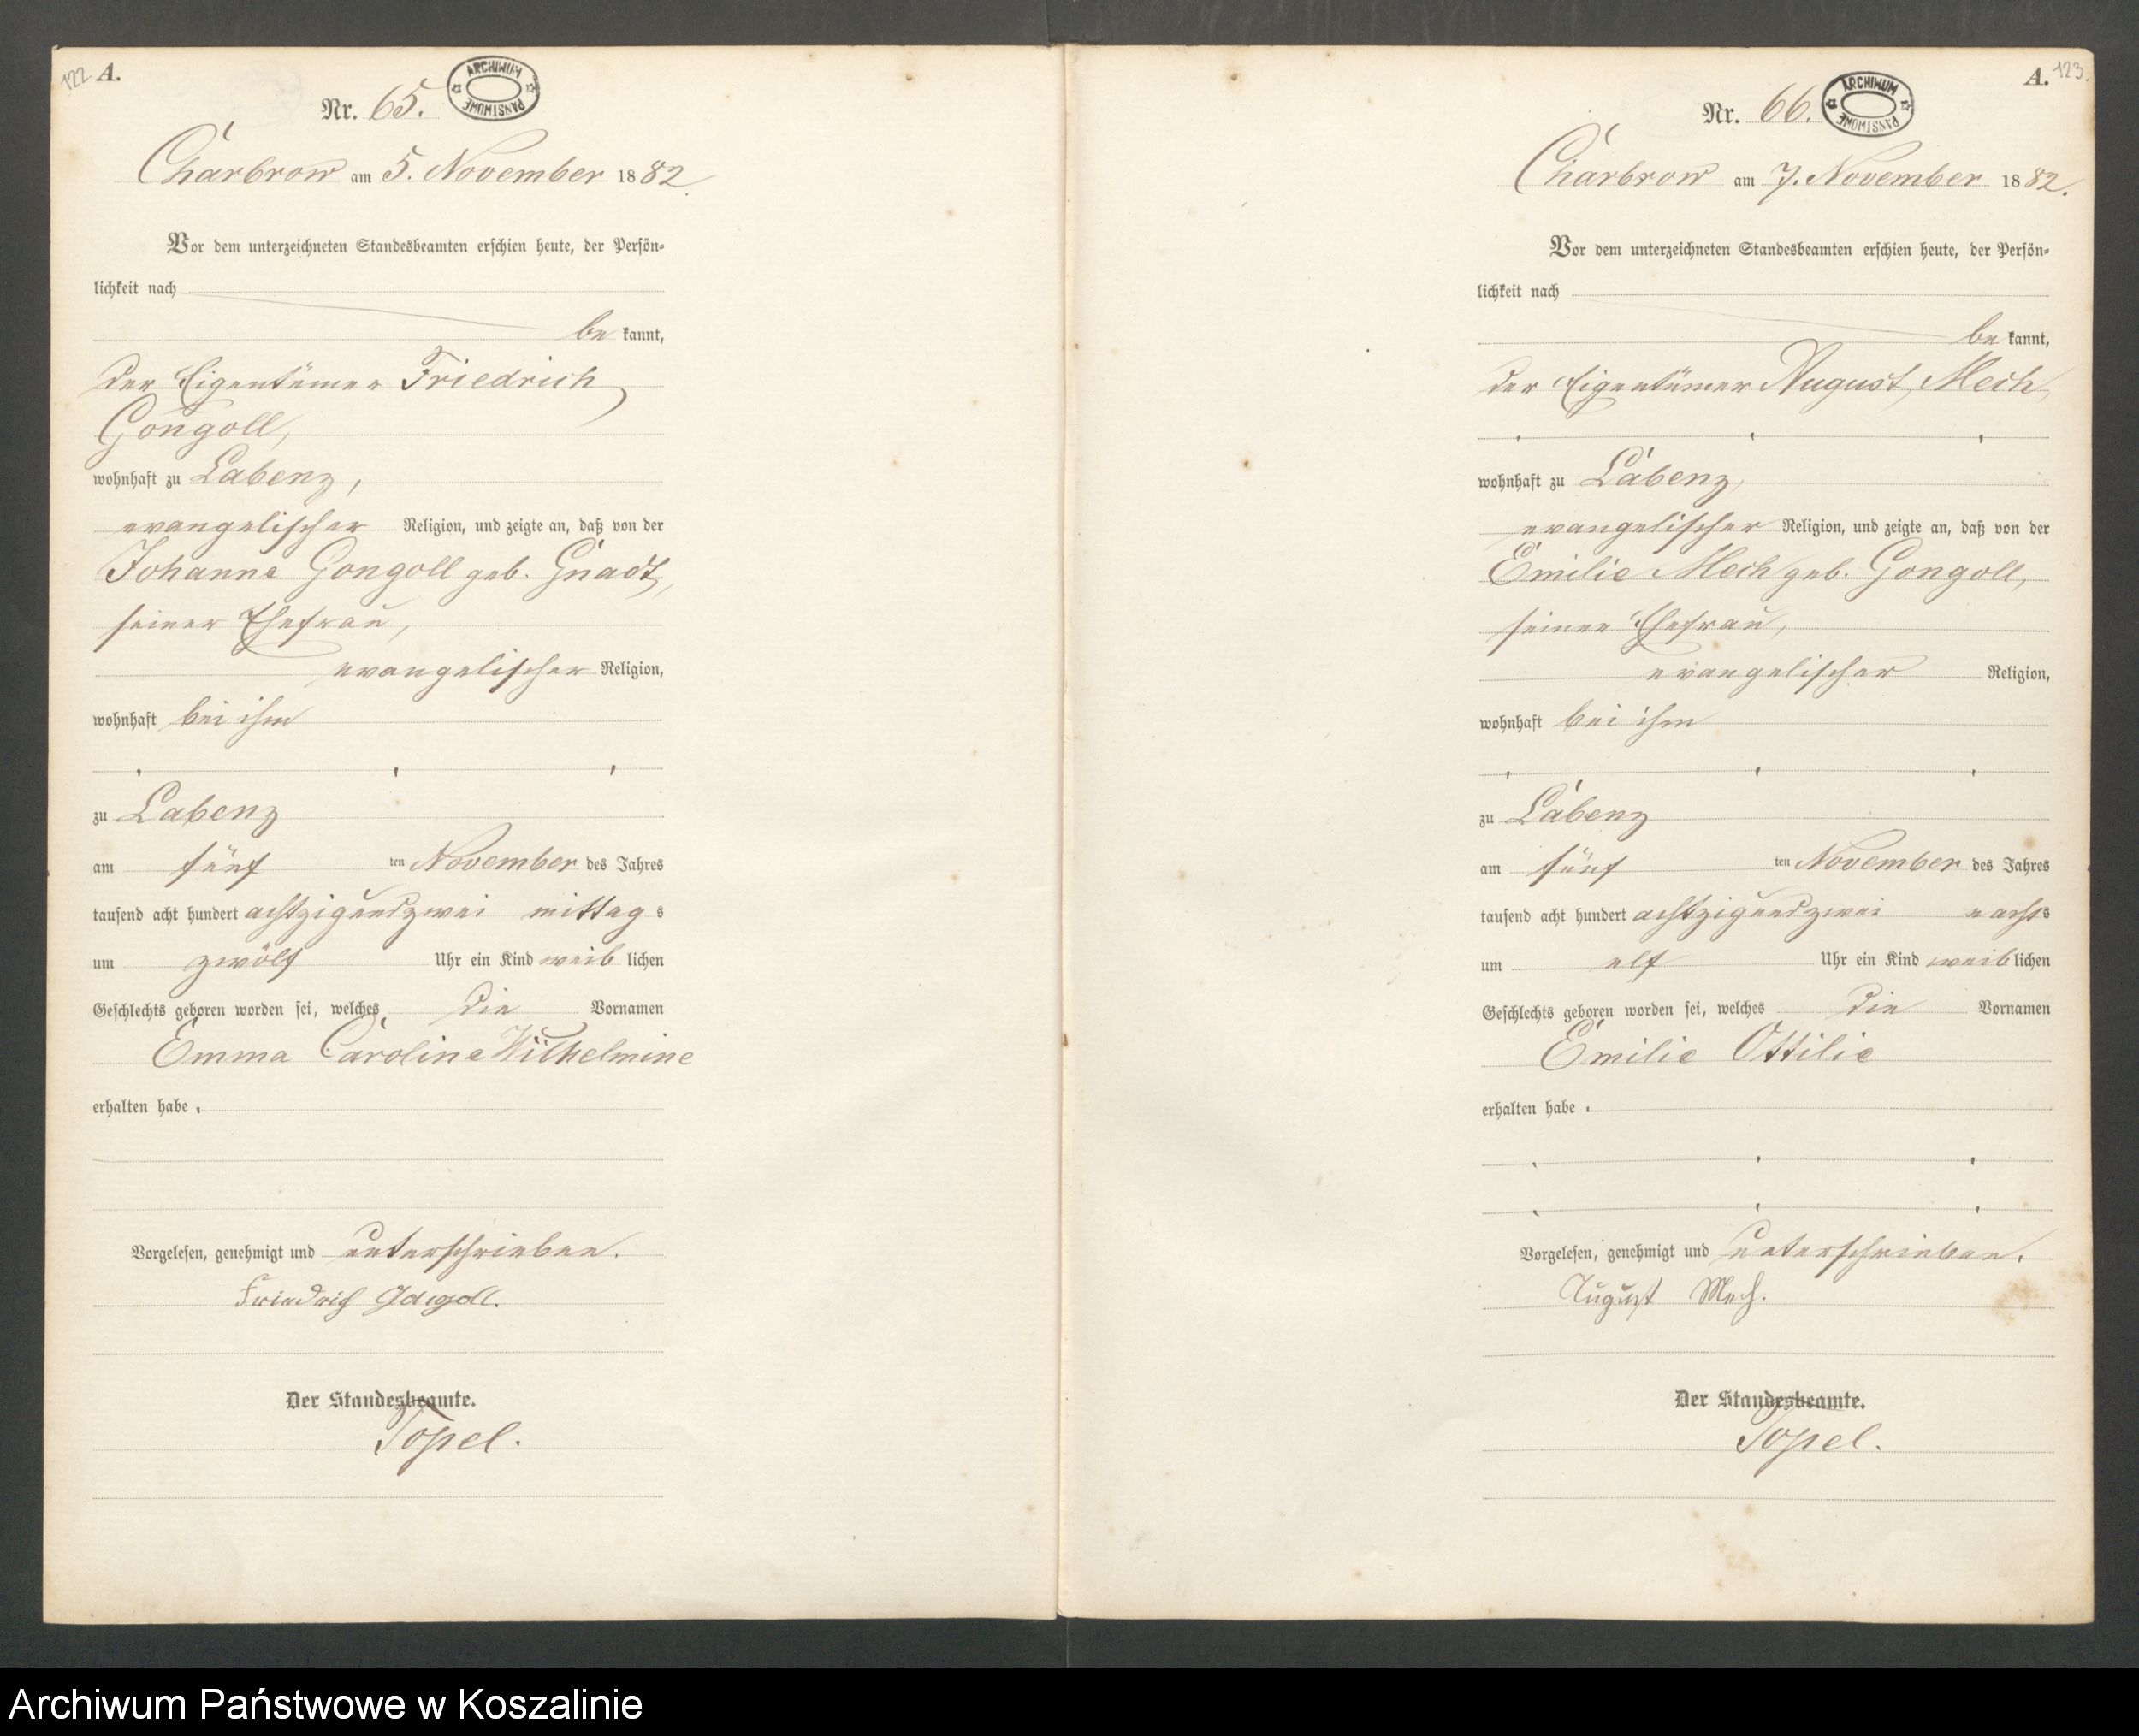 122 A.
Nr. 65.
ARCHIWUM PAŃSTWOWE
Charbrow am 5. November 1882.
Vor dem unterzeichneten Standesbeamten erschien heute, der Persön-
lichkeit nach
be kannt,
der Eigentümer Friedrich
Gongoll,
wohnhaft zu Labenz,
evangelischer Religion, und zeigte an, daß von der
Johanna Gongoll geb. Gnadt,
seiner Ehefrau,
evangelischer Religion,
wohnhaft bei ihm
zu Labenz
am fünf ten November des Jahres
tausend acht hundert achtzigundzwei mittag s
um zwölf Uhr ein Kind weib lichen
Geschlechts geboren worden sei, welches die Vornamen
Emma Caroline Wilhelmine
erhalten habe.
Vorgelesen, genehmigt und unterschrieben.
Friedrich Gongoll.
Der Standesbeamte.
Topel.
A. 123.
Nr. 66.
ARCHIWUM PAŃSTWOWE
Charbrow am 7. November 1882.
Vor dem unterzeichneten Standesbeamten erschien heute, der Persön-
lichkeit nach
be kannt,
der Eigentümer August Mech,
wohnhaft zu Labenz,
evangelischer Religion, und zeigte an, daß von der
Emilie Mech geb. Gongoll,
seiner Ehefrau,
evangelischer Religion,
wohnhaft bei ihm
zu Labenz
am fünf ten November des Jahres
tausend acht hundert achtzigundzwei nachts
um elf Uhr ein Kind weib lichen
Geschlechts geboren worden sei, welches die Vornamen
Emilie Ottilie
erhalten habe.
Vorgelesen, genehmigt und unterschrieben.
August Mech.
Der Standesbeamte.
Topel.
Archiwum Państwowe w Koszalinie